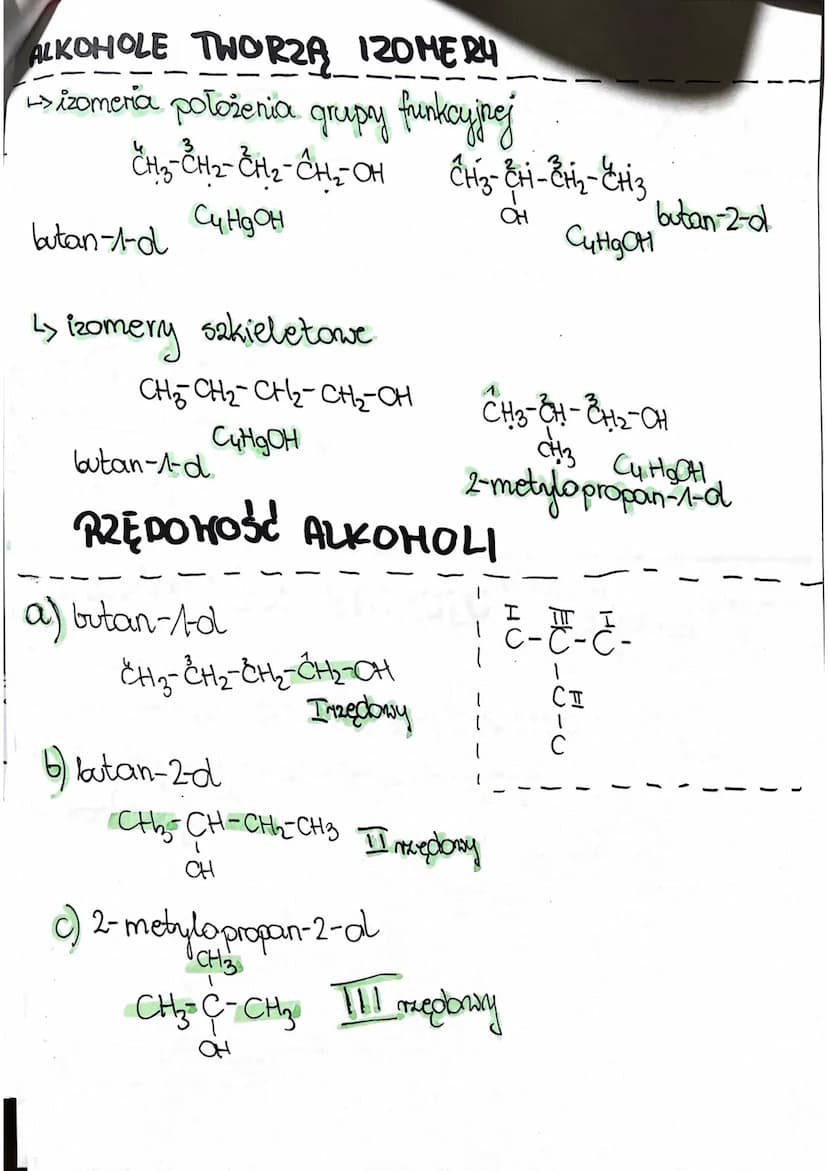 ALKOHOLE TWORZĄ IZOMERY
↳ izomeria położenia grupy funkcyjnej
4 3 2 1
CH3-CH2-CH2-CH2-OH
C4H9OH
butan-1-ol
1 2 3 4
CH3-CH-CH2-CH3
OH
butan-2-ol
C4H9OH
↳ izomery szkieletowe
CH3-CH2-CH2-CH2-OH
C4H9OH
butan-1-ol
1 2 3
CH3-CH-CH2-OH
CH3
C4H9OH
2-metylopropan-1-ol
RZĘDOWOŚĆ ALKOHOLI
a) butan-1-ol
CH3-CH2-CH2-CH2-OH
I rzędowy
I III I
C-C-C-
C II
C
b) butan-2-ol
CH3-CH-CH2-CH3
OH
II rzędowy
c) 2-metylopropan-2-ol
CH3
CH3-C-CH3
OH
III rzędowy